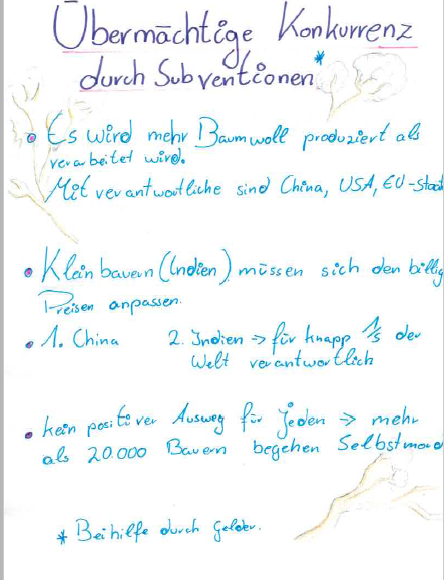 Übermächtige Konkurrenz
durch Subventionen*
• Es wird mehr Baumwoll produziert als
verarbeitet wird.
Mit verantwortliche sind China, USA, EU-Staat
• Kleinbauern (Indien) müssen sich den billig
Preisen anpassen.
• 1. China 2. Indien → für knapp 1/5 der
Welt verantwortlich
• kein positiver Ausweg für jeden → mehr
als 20.000 Bauern begehen Selbstmord
* Beihilfe durch Gelder.